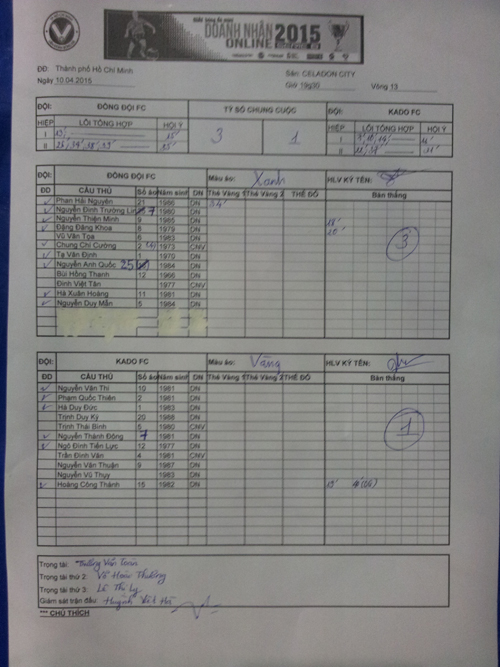 DOANH NHÂN 2015
ONLINE
ĐĐ: Thành phố Hồ Chí Minh
Ngày 10.04.2015
Sân: CELADON CITY
Giờ 19g30 Vòng 13
ĐỘI: ĐỒNG ĐỘI FC TỶ SỐ CHUNG CUỘC ĐỘI: KADO FC
HIỆP LỖI TỔNG HỢP HỘI Ý 3 1 HIỆP LỖI TỔNG HỢP HỘI Ý
I I
II II
ĐỘI: ĐỒNG ĐỘI FC Màu áo: Xanh HLV KÝ TÊN:
ĐD CẦU THỦ Số áo Năm sinh DN Thẻ Vàng 1 Thẻ Vàng 2 THẺ ĐỎ Bàn thắng
Phan Hải Nguyên 21 1986 DN 34'
Nguyễn Đình Trường 7 1980 DN
Nguyễn Thiện Minh 9 1985 DN
Đặng Đăng Khoa 8 1979 DN
Vũ Văn Tọa 6 1983 DN
Chung Chí Cường 2 1973 CNV
Tạ Văn Định 1 1970 DN
Nguyễn Anh Quốc 25 1984 DN
Bùi Hồng Thanh 12 1966 DN
Đinh Việt Tân 1977 CNV
Hà Xuân Hoàng 11 1981 DN
Nguyễn Duy Mẫn 5 1984 DN
3
ĐỘI: KADO FC Màu áo: Vàng HLV KÝ TÊN:
ĐD CẦU THỦ Số áo Năm sinh DN Thẻ Vàng 1 Thẻ Vàng 2 THẺ ĐỎ Bàn thắng
Nguyễn Văn Thi 10 1981 DN
Phạm Quốc Thiên 2 1981 DN
Hà Duy Đức 1 1983 DN
Trịnh Duy Ký 20 1988 DN
Trịnh Thái Bình 5 1980 CNV
Nguyễn Thành Đông 7 1981 DN
Ngô Đình Tiến Lực 12 1977 DN
Trần Đình Văn 4 1981 CNV
Nguyễn Văn Thuận 9 1987 DN
Nguyễn Vũ Thụy 1983 DN
Hoàng Công Thành 15 1982 DN
1
Trọng tài: Trương Văn Toàn
Trọng tài thứ 2: Võ Hoài Thương
Trọng tài thứ 3: Lê Thi Ly
Giám sát trận đấu: Huỳnh Việt Hà
*** CHÚ THÍCH